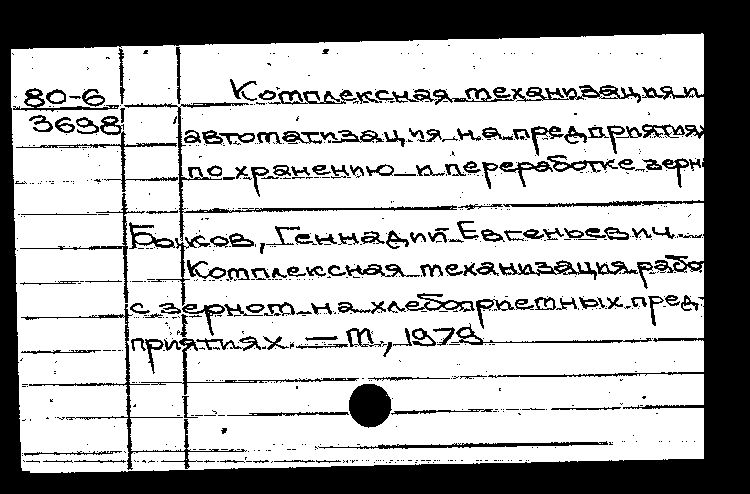 80-6
3698
Комплексная механизация и
автоматизация на предприятия
по хранению и переработке зерн
Быков, Геннадий Евгеньевич.
Комплексная механизация рабо
с зерном на хлебоприемных пред-
приятиях. — М., 1979.